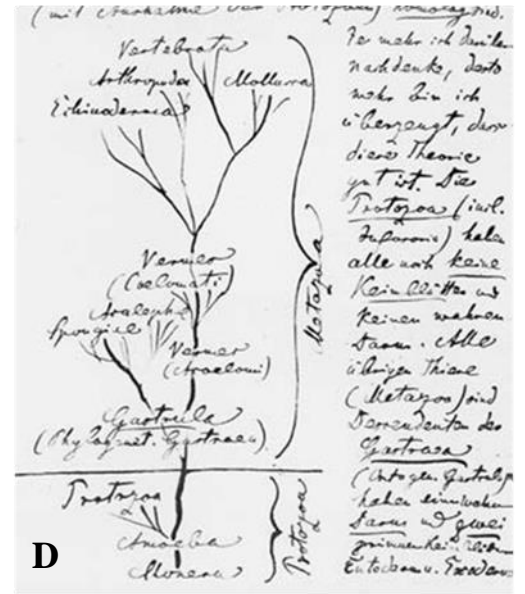 (mit Ausnahme der Protozoen) homolog sind.
Vertebrata
Arthropoda Mollusca
Echinoderma
Vermes
(Coelomati)
Acalephae
Spongiae
Vermes
(Acoelomi)
Gastrula
(Phylogenet. Gastraea)
Metazoa
Protozoa
Amoeba
Monera
Protozoa
D
Je mehr ich darüber
nachdenke, desto
mehr bin ich
überzeugt, dass
diese Theorie
gut ist. Die
Protozoa (incl.
Infusoria) haben
alle noch keine
Keimblätter und
keinen wahren
Darm. Alle
übrigen Thiere
(Metazoa) sind
Descendenten der
Gastraea
(Ontogen. Gastrula)
haben einen wahren
Darm und zwei
primären
Entoderm u. Exoderm